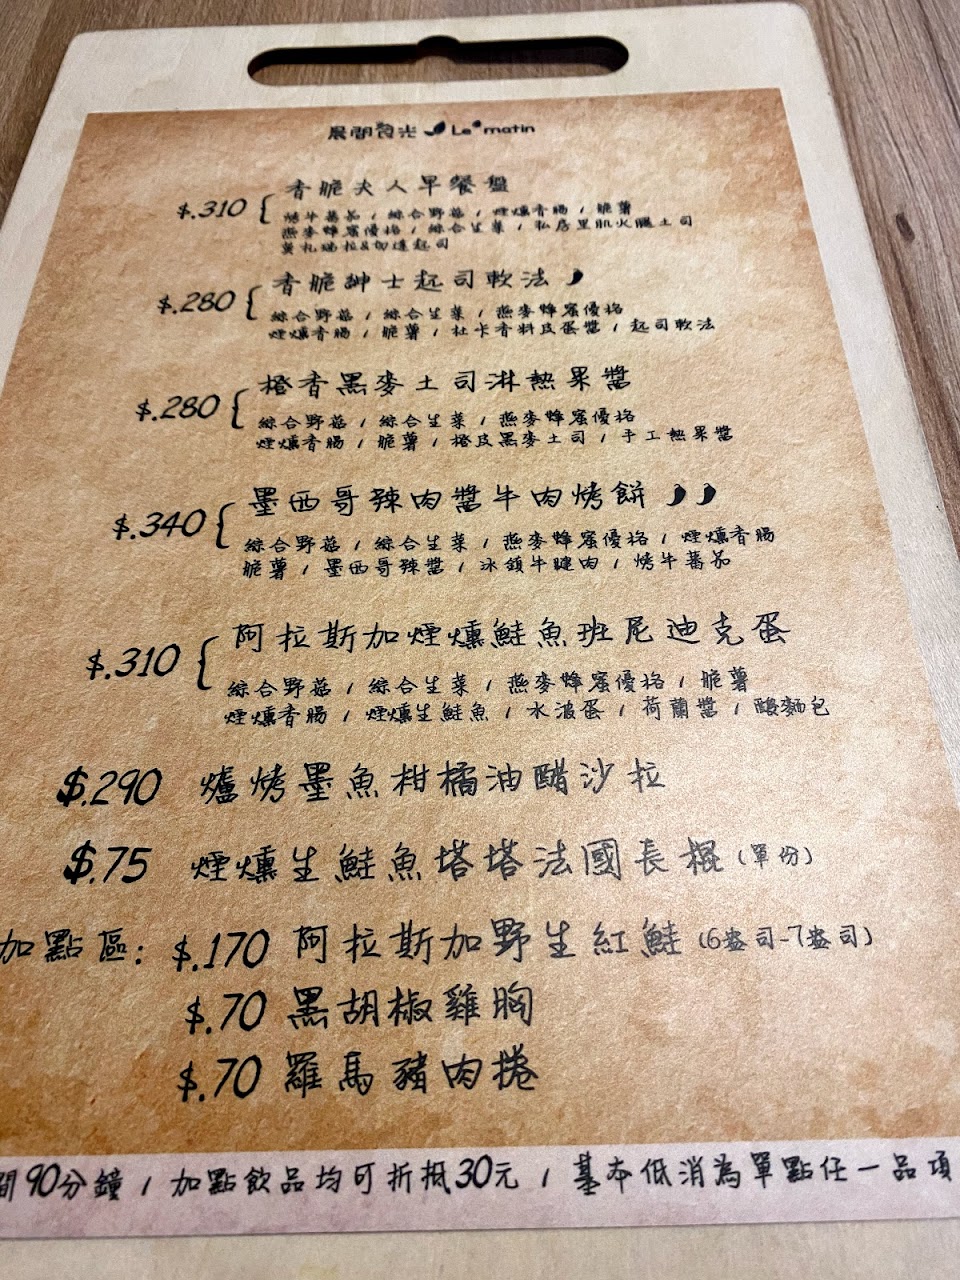 晨間食光 Le matin
香脆夫人早餐盤
$.310
烤牛蕃茄 / 綜合野菇 / 煙燻香腸 / 脆薯
燕麥蜂蜜優格 / 綜合生菜 / 私房里肌火腿土司
莫札瑞拉&切達起司
香脆紳士起司軟法
$.280
綜合野菇 / 綜合生菜 / 燕麥蜂蜜優格
煙燻香腸 / 脆薯 / 杜卡香料皮蛋醬 / 起司軟法
橙香黑麥土司淋熱果醬
$.280
綜合野菇 / 綜合生菜 / 燕麥蜂蜜優格
煙燻香腸 / 脆薯 / 橙皮黑麥土司 / 手工熱果醬
墨西哥辣肉醬牛肉烤餅
$.340
綜合野菇 / 綜合生菜 / 燕麥蜂蜜優格 / 煙燻香腸
脆薯 / 墨西哥辣醬 / 冰鎮牛腱肉 / 烤牛蕃茄
阿拉斯加煙燻鮭魚班尼迪克蛋
$.310
綜合野菇 / 綜合生菜 / 燕麥蜂蜜優格 / 脆薯
煙燻香腸 / 煙燻生鮭魚 / 水波蛋 / 荷蘭醬 / 酸麵包
$.290 爐烤墨魚柑橘油醋沙拉
$.75 煙燻生鮭魚塔塔法國長棍 (單份)
加點區: $.170 阿拉斯加野生紅鮭 (6盎司-7盎司)
$.70 黑胡椒雞胸
$.70 羅馬豬肉捲
間90分鐘 / 加點飲品均可折抵30元 / 基本低消為單點任一品項